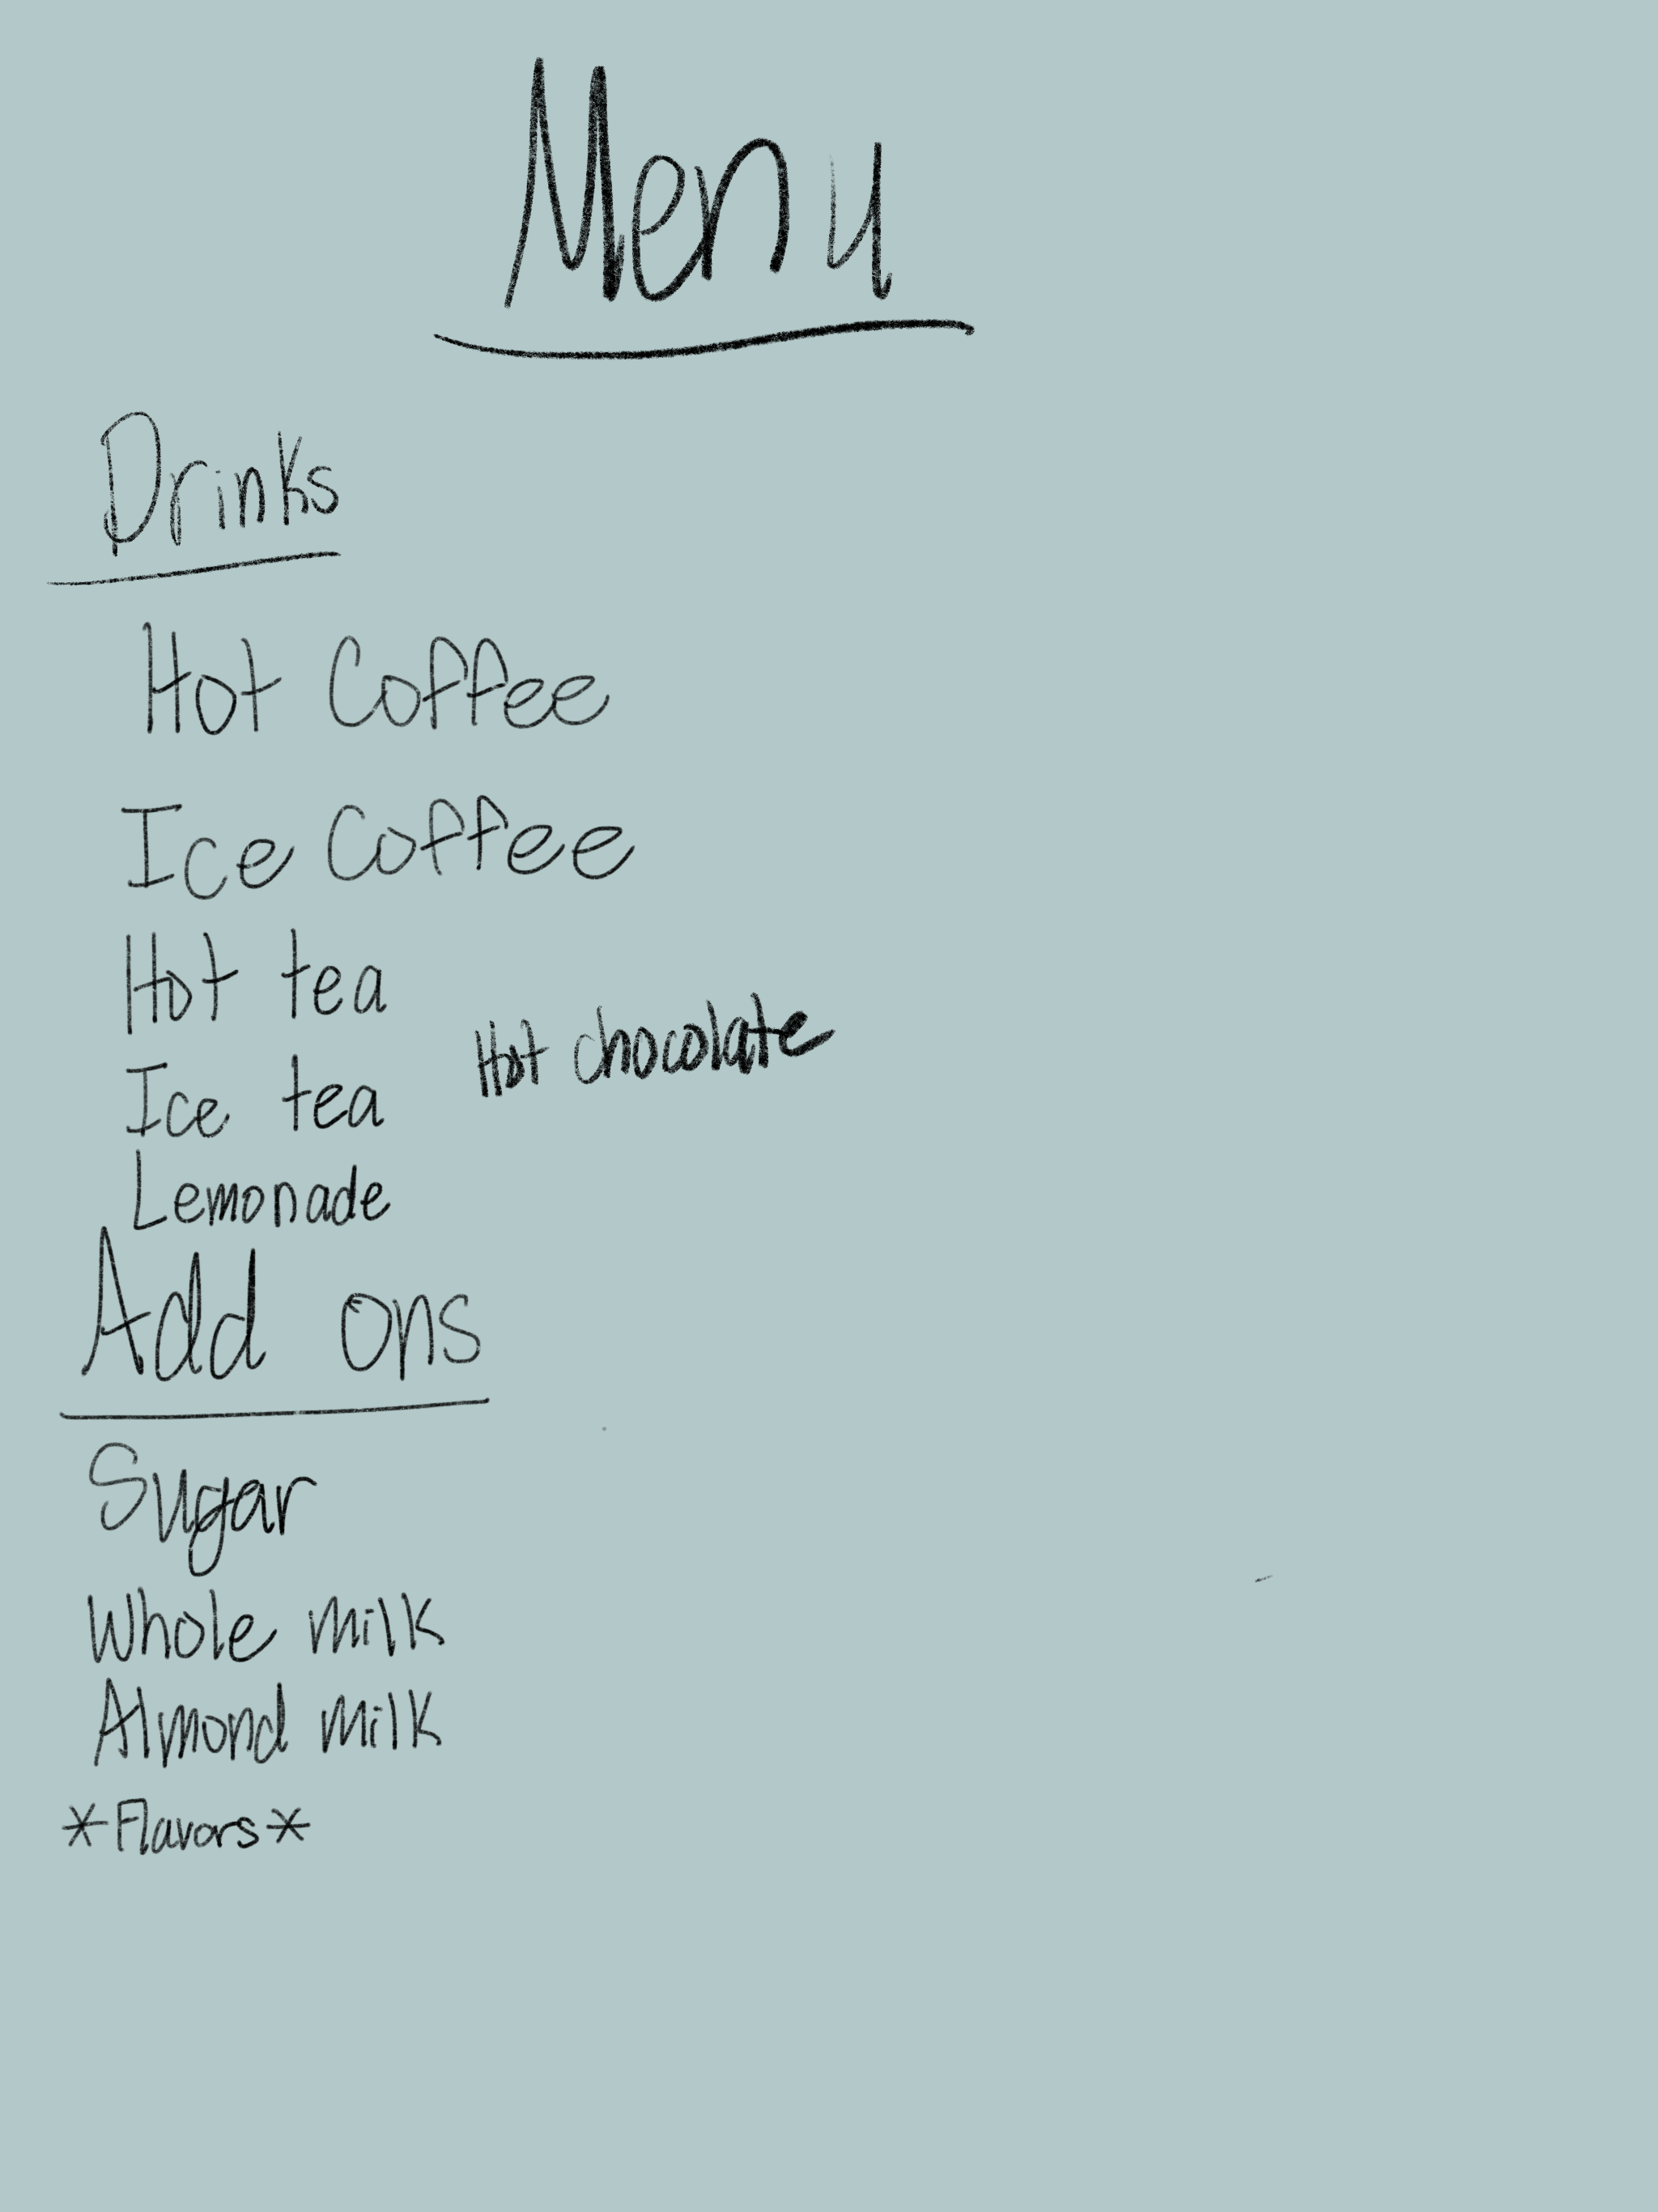 Menu
Drinks
Hot Coffee
Ice Coffee
Hot tea
Hot chocolate
Ice tea
Lemonade
Add ons
Sugar
Whole milk
Almond milk
*Flavors*